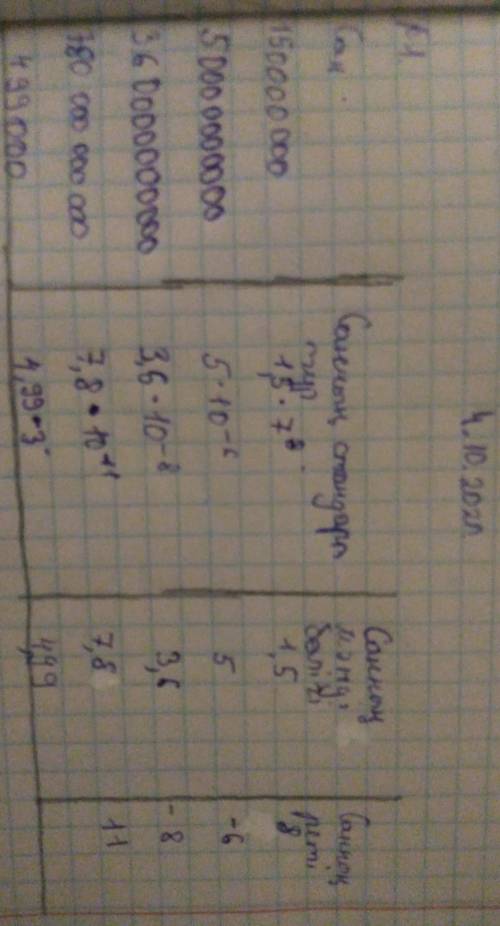 4.10.202
№1
Сан Санның стандарт түрі Санның мәнді бөлігі Санның реті
150000000 1,5 · 7⁸ 1,5 8
50000000000 5 · 10⁻⁶ 5 -6
3600000000000 3,6 · 10⁻⁸ 3,6 -8
780 000 000 000 7,8 · 10⁻¹¹ 7,8 11
499 0000 4,99 · 3 4,99